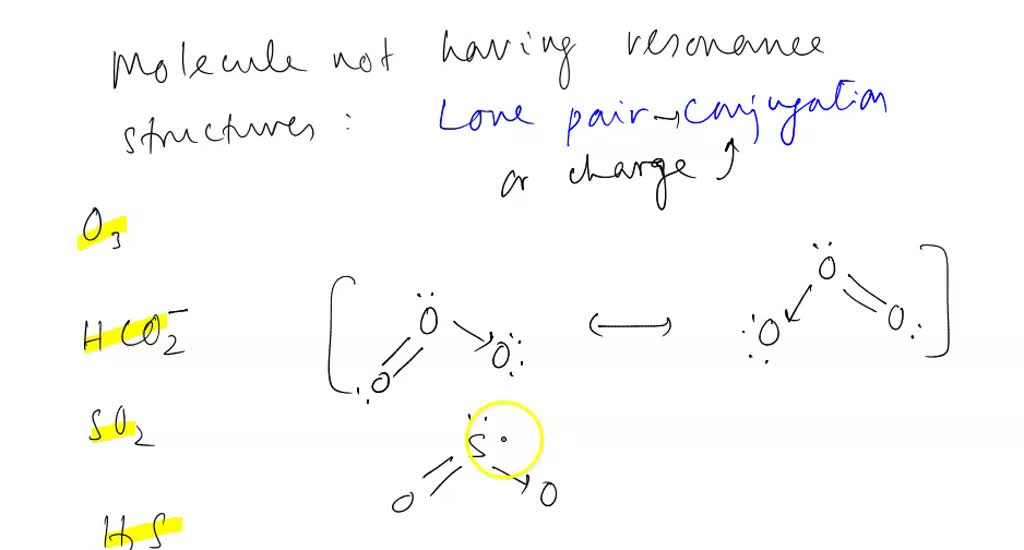 Molecule not having resonance
structures : Lone pair → conjugation
or charge ↑
O3
O O O ⟷ O O O
HCO2-
SO2
S
O O
H2S